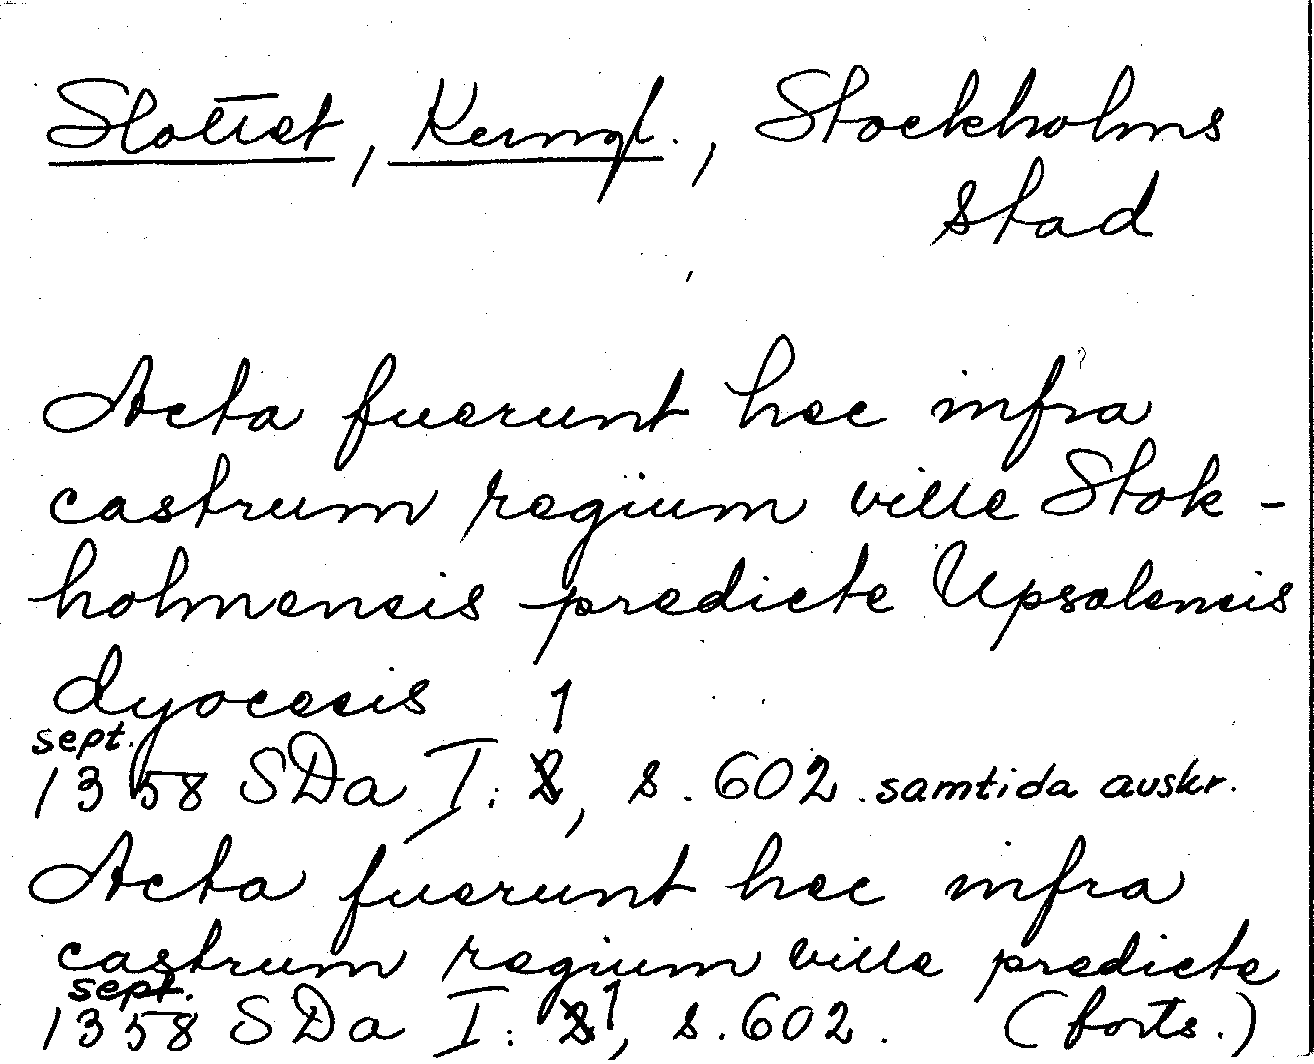 Slottet, Kungl., Stockholms
stad
Acta fuerunt hec infra
castrum regium ville Stok-
holmensis predicte Upsalensis
dyocesis 1
sept.
1358 SDa I: 2, s. 602. samtida avskr.
Acta fuerunt hec infra
castrum regium ville predicte
sept.
1358 SDa I: 2 1, s. 602. (forts.)